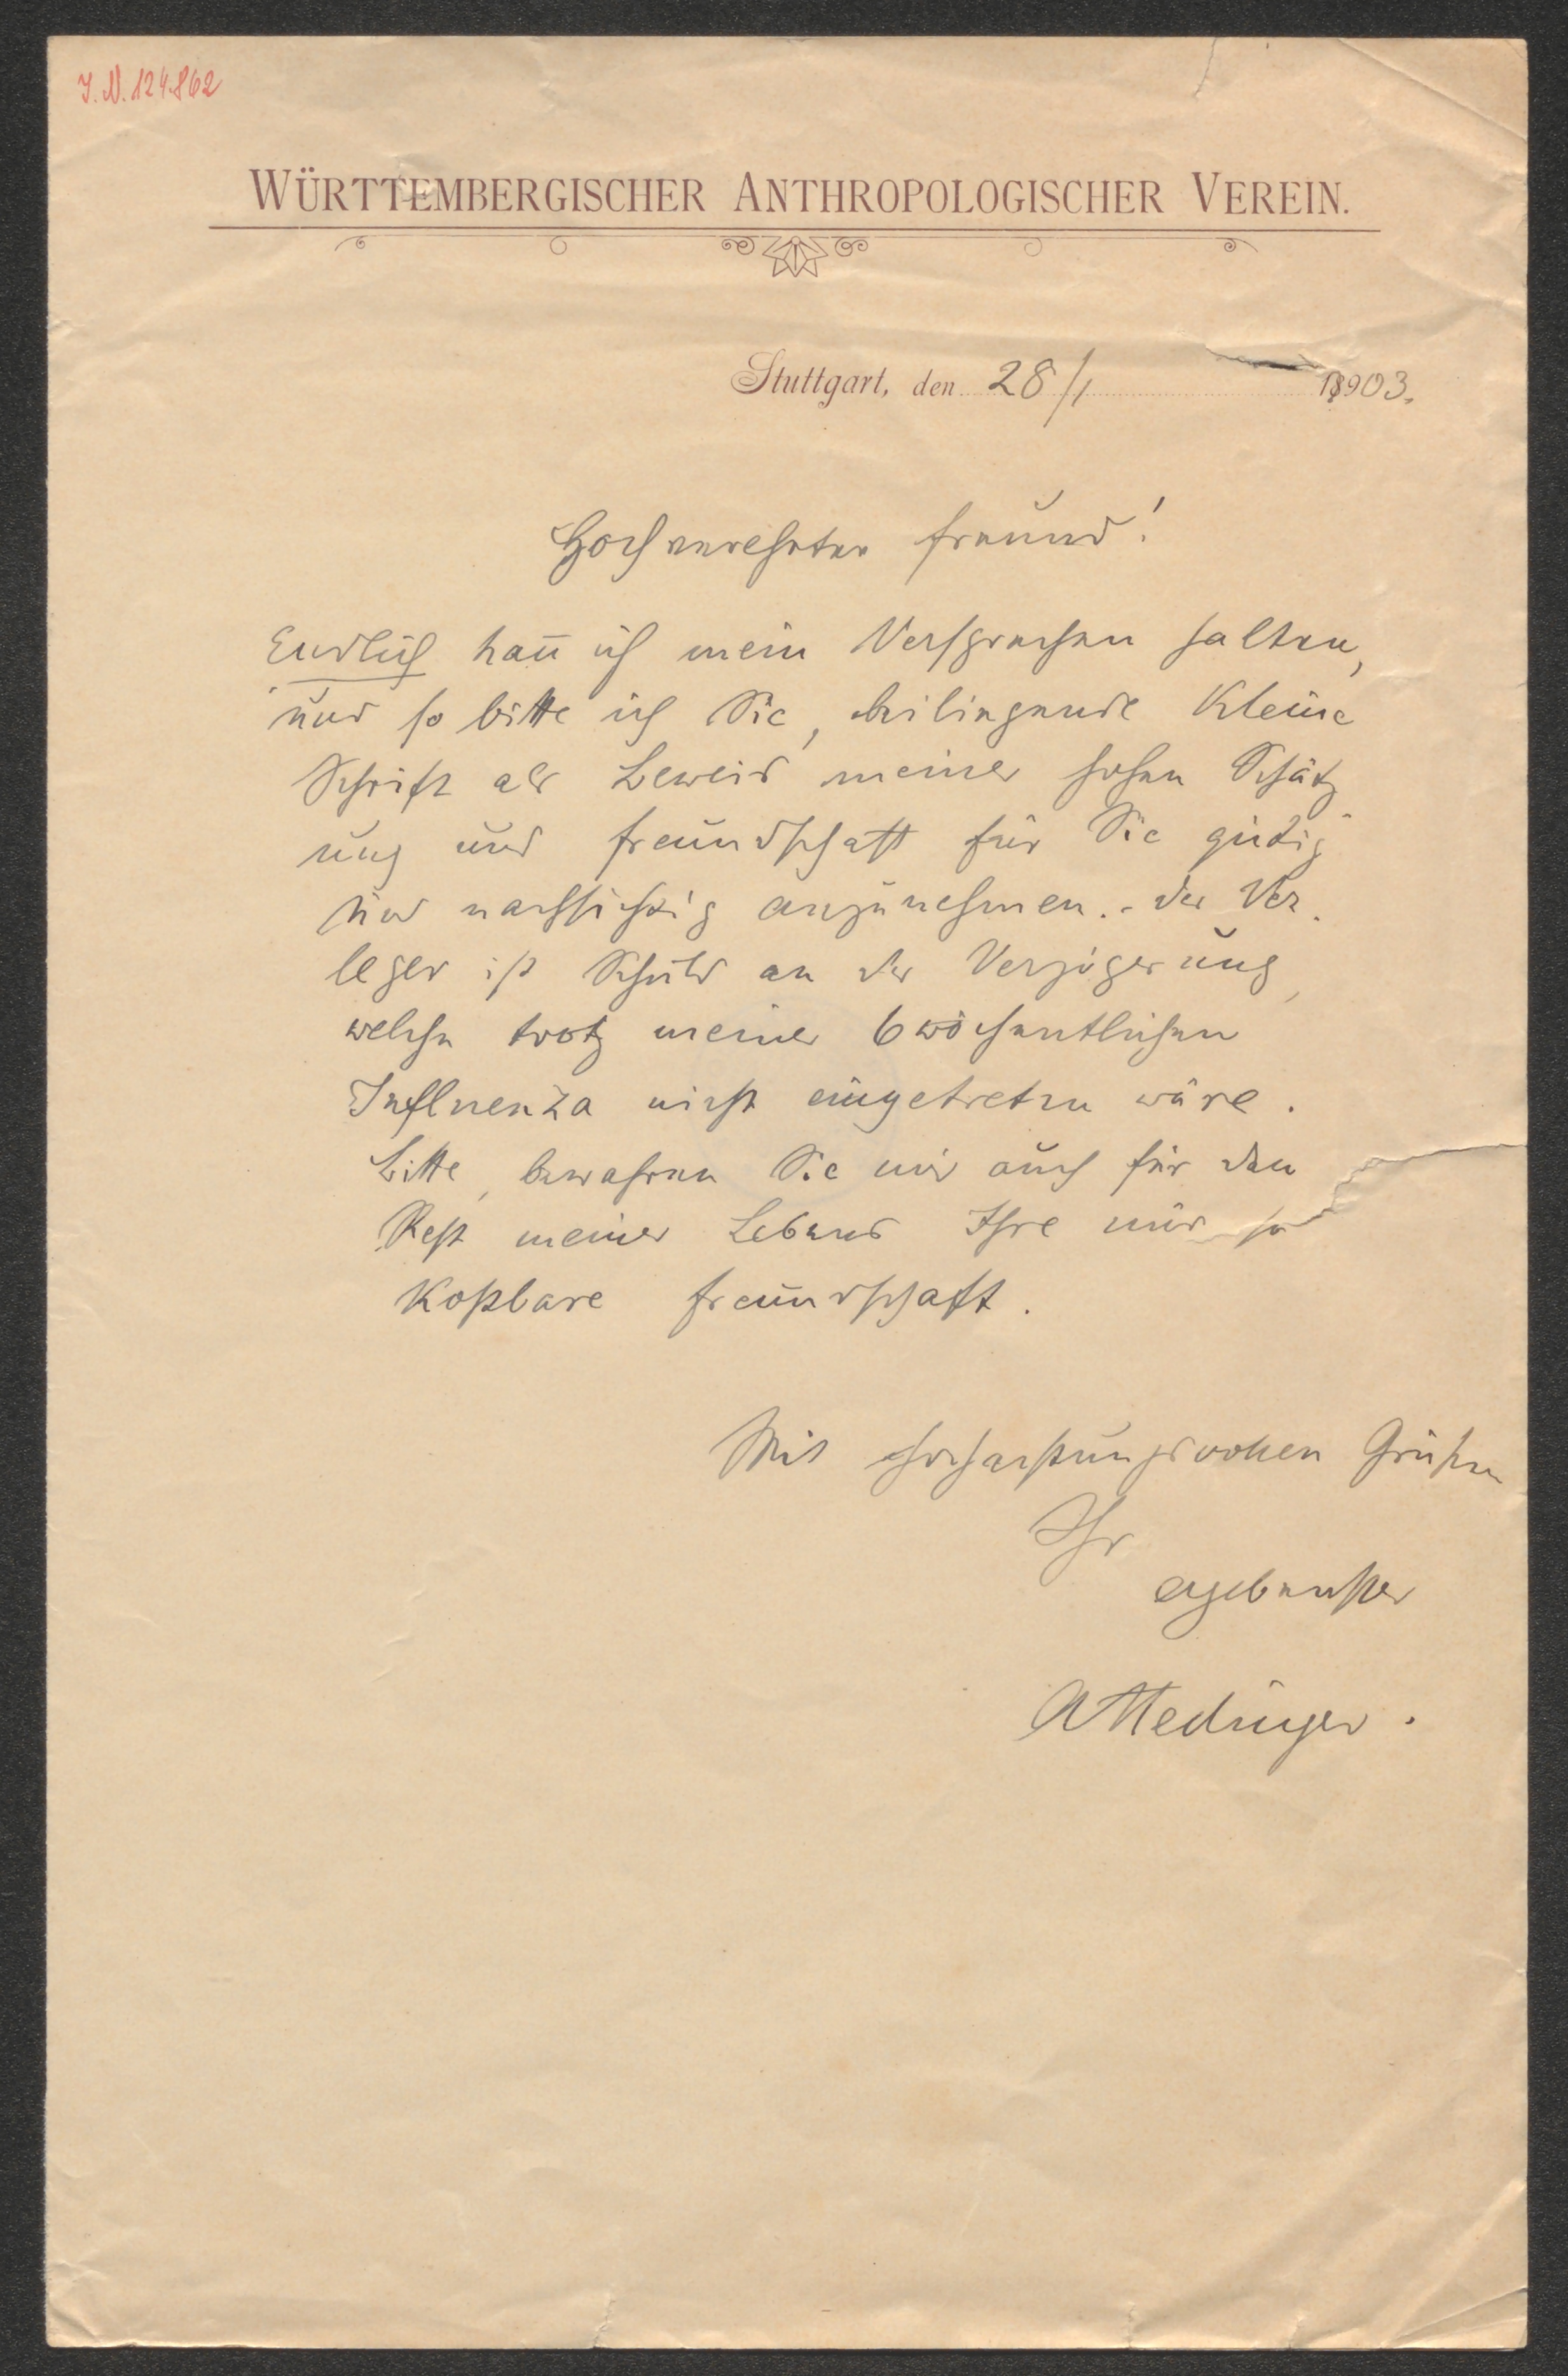 J.N. 124.862
WÜRTTEMBERGISCHER ANTHROPOLOGISCHER VEREIN.
Stuttgart, den 28/1 1903.
Hochverehrter Freund!
Endlich kan̄ ich mein Versprechen halten,
und so bitte ich Sie, beiliegende kleine
Schrift als Beweis meiner hohen Schätz
ung und Freundschaft für Sie gütig
und nachsichtig anzunehmen. - Der Ver-
leger ist Schuld an der Verzögerung,
welche trotz meiner 6 wöchentlichen
Influenza nicht eingetreten wäre.
Bitte, bewahren Sie mir auch für den
Rest meines Lebens Ihre mir so
kostbare Freundschaft.
Mit hochachtungsvollen Grüßen
Ihr
ergebenster
A Hedinger.